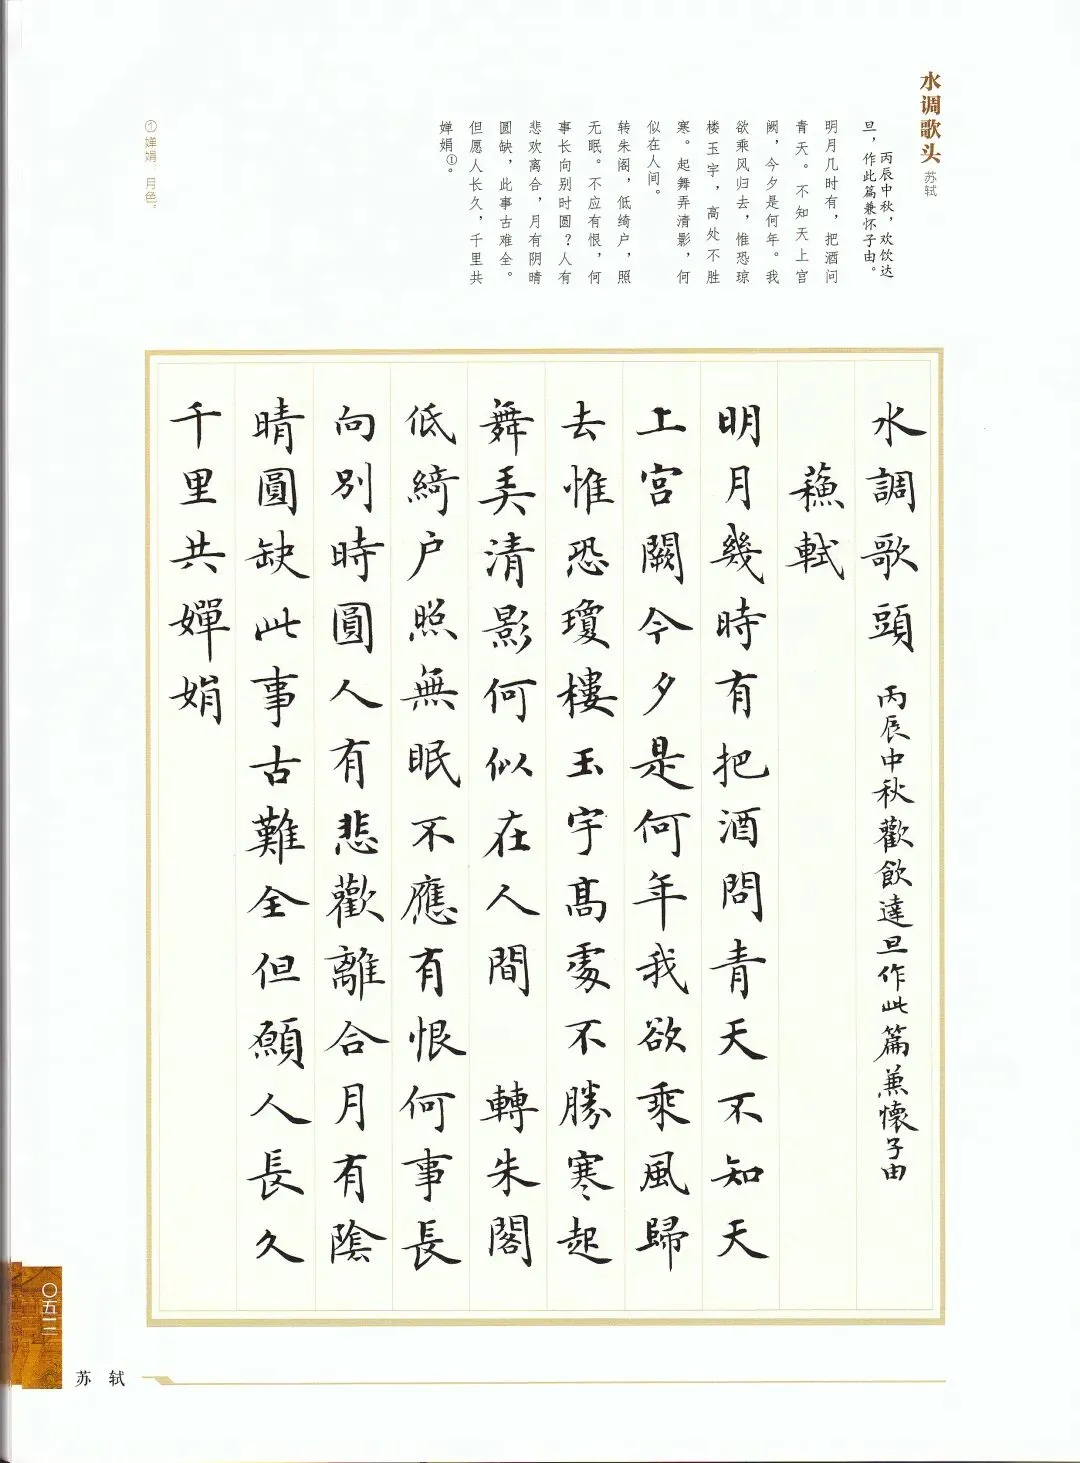 水调歌头 苏轼
丙辰中秋，欢饮达
旦，作此篇兼怀子由。
明月几时有，把酒问
青天。不知天上宫
阙，今夕是何年。我
欲乘风归去，惟恐琼
楼玉宇，高处不胜
寒。起舞弄清影，何
似在人间。
转朱阁，低绮户，照
无眠。不应有恨，何
事长向别时圆？人有
悲欢离合，月有阴晴
圆缺，此事古难全。
但愿人长久，千里共
婵娟①。
①婵娟：月色。
水調歌頭 丙辰中秋歡飲達旦作此篇兼懷子由
蘓軾
明月幾時有把酒問青天不知天
上宮闕今夕是何年我欲乘風歸
去惟恐瓊樓玉宇髙處不勝寒起
舞弄清影何似在人間 轉朱閣
低綺户照無眠不應有恨何事長
向別時圓人有悲歡離合月有陰
晴圓缺此事古難全但願人長久
千里共嬋娟
〇五二
苏轼